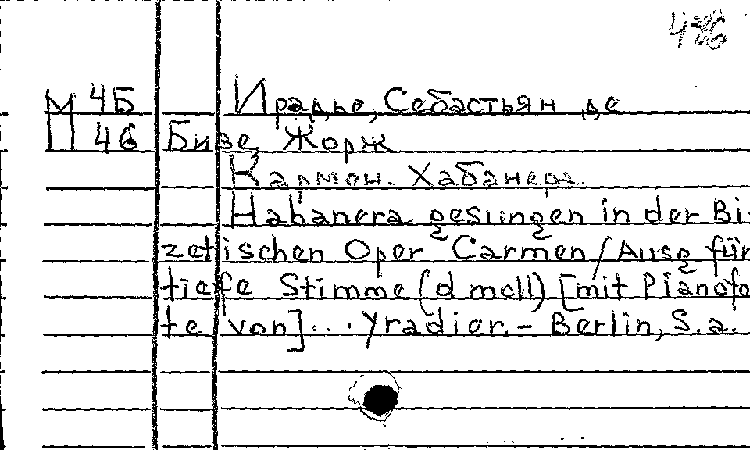 486
М 45 Ирадье, Себастьян де
П 46 Бизе, Жорж
Кармен. Хабанера.
Habanera gesungen in der Bi-
zetischen Oper Carmen/Ausg für
tiefe Stimme (d moll) [mit Pianofo
te von]... Yradier. – Berlin, S.a.